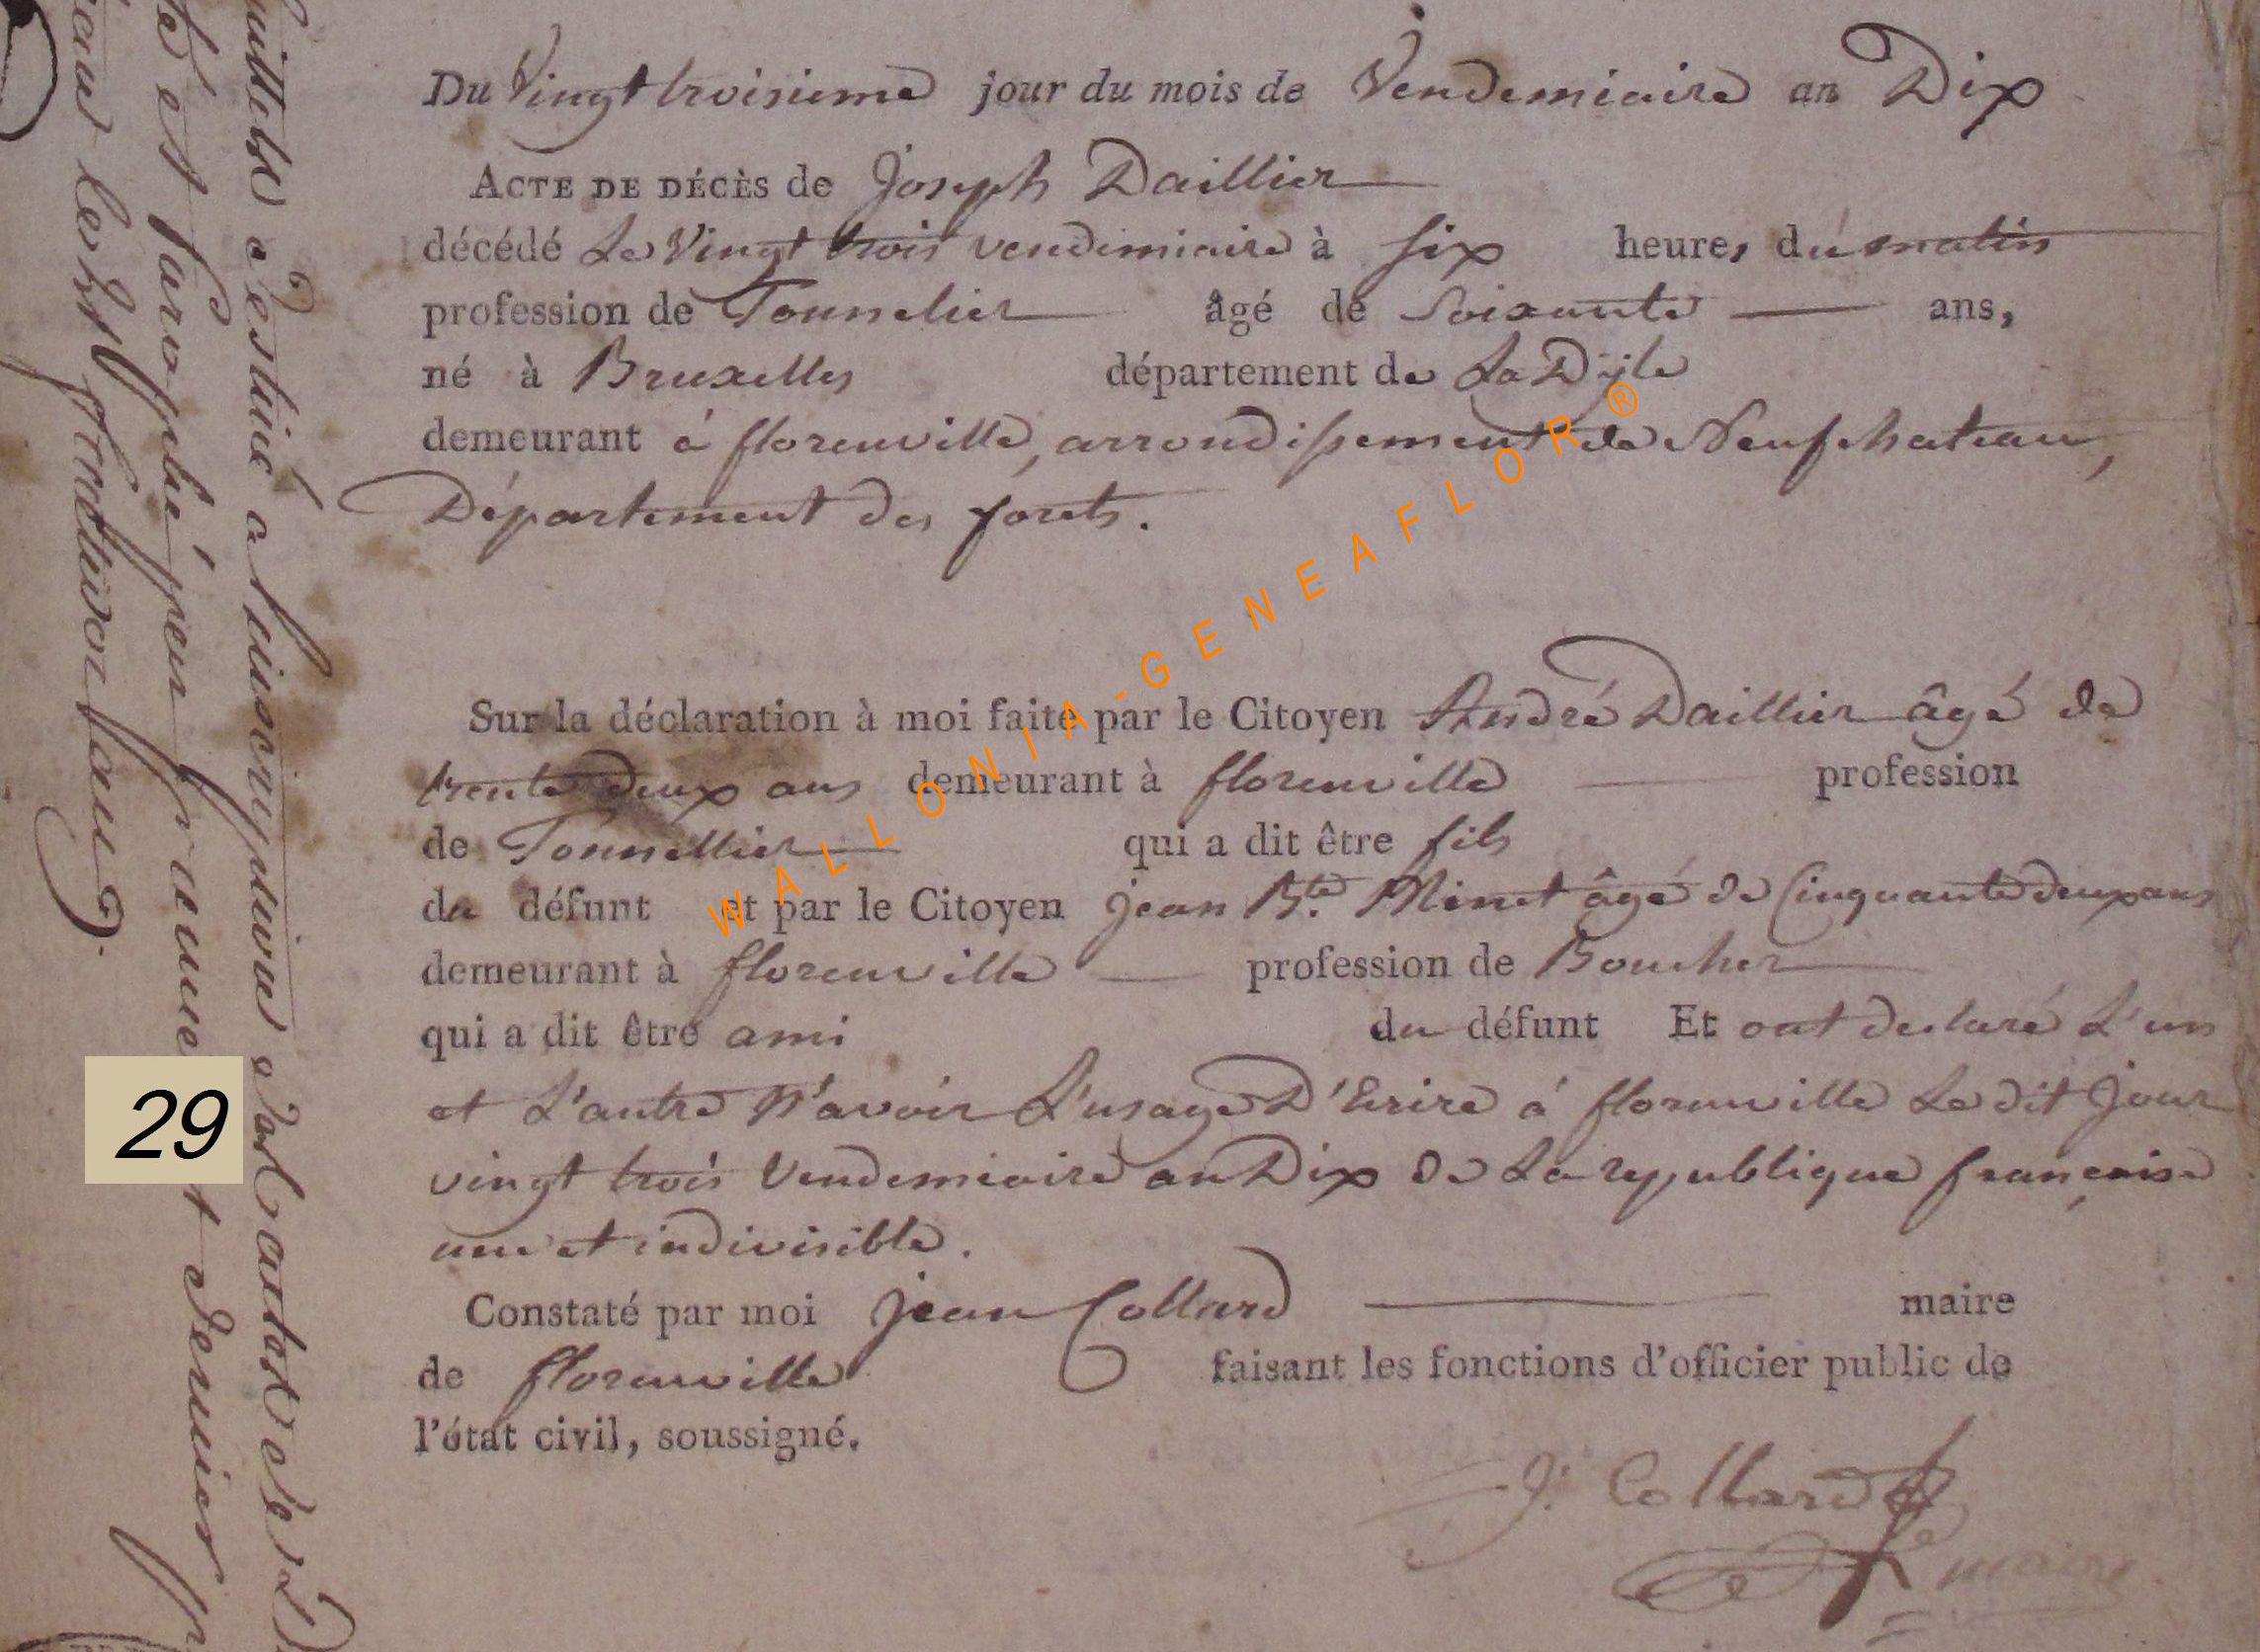 Du Vingt troisieme jour du mois de Vendemiaire an Dix
ACTE DE DÉCÈS de Joseph Daillier
décédé Le Vingt trois vendemiaire à six heures du matin
profession de Tonnelier âgé de soixante ans,
né à Bruxelles département de La Dyle
demeurant á florenville, arrondissement de Neufchateau,
Département des forets.
Sur la déclaration à moi faite par le Citoyen André Daillier âgé de
trente deux ans demeurant à florenville profession
de Tonnellier qui a dit être fils
du défunt et par le Citoyen jean Bte. Minet âgé de Cinquante deux ans
demeurant à florenville profession de Boucher
qui a dit être ami du défunt Et ont declaré L'un
et L'autre N'avoir L'usage D'Ecrire á florenville Le dit Jour
vingt trois Vendemiaire an Dix de La republique française
une et indivisible.
Constaté par moi jean Collard maire
de florenville faisant les fonctions d'officier public de
l'état civil, soussigné.
J. Collard
maire
29
WALLONIA-GENEAFLOR®
destiné a l'inscription des actes de
et paraphé par premier et dernier